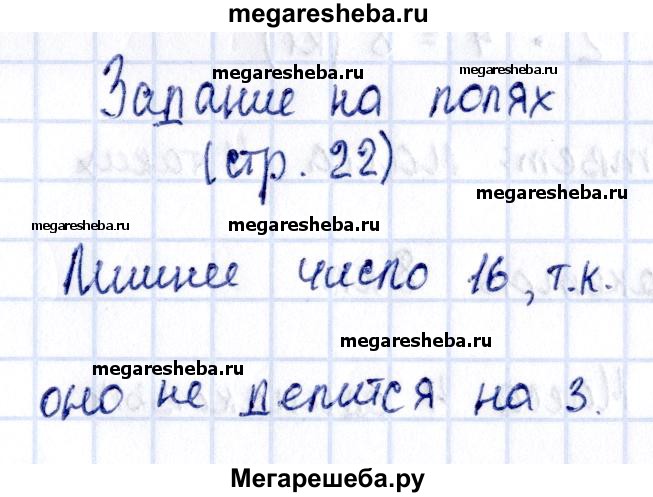 megaresheba.ru
megaresheba.ru megaresheba.ru
Задание на полях
(стр. 22)
megaresheba.ru megaresheba.ru
Лишнее число 16, т.к.
megaresheba.ru
megaresheba.ru
оно не делится на 3.
Мегарешеба.ру